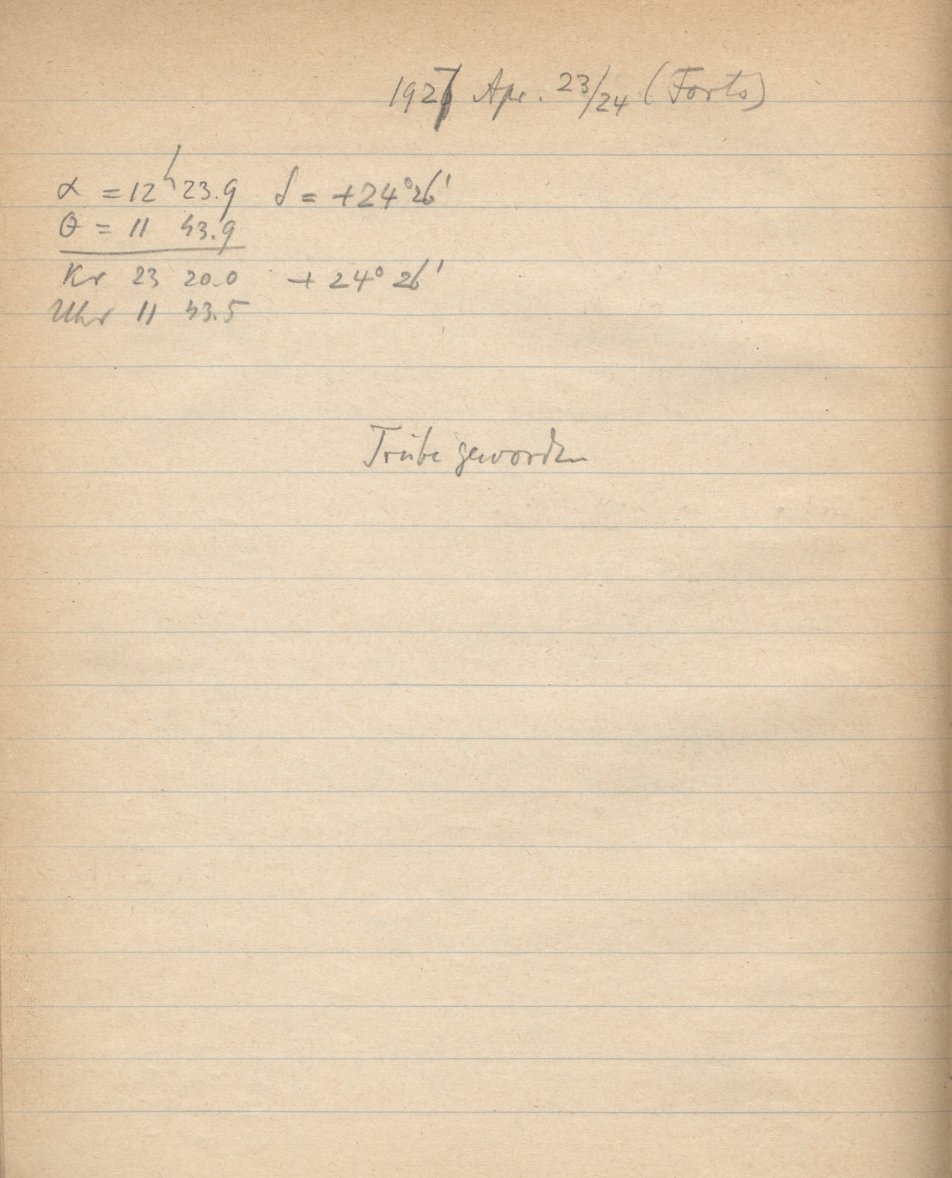 1927 Apr. 23/24 (Forts)
α = 12ʰ 23.9 δ = +24° 26'
θ = 11 43.9
Kr 23 20.0 + 24° 26'
Uhr 11 43.5
Trübe geworden